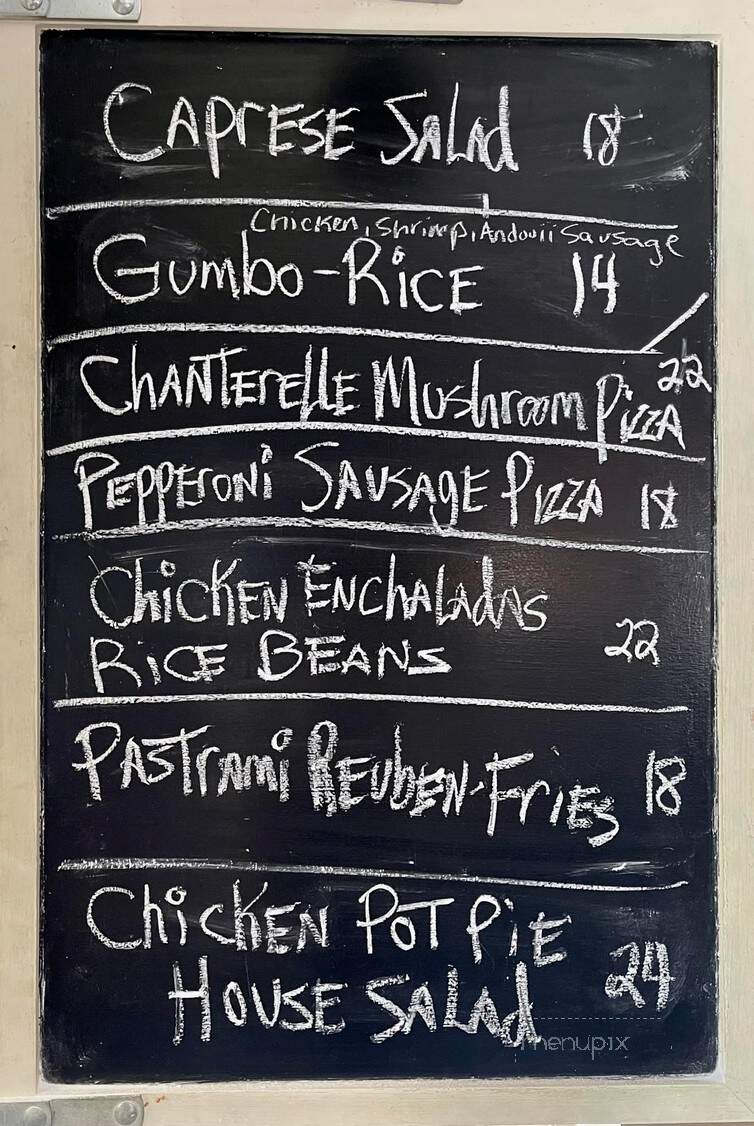 CAPrESE SALAd 18
Chicken, Shrimp, Andouii Sausage
Gumbo-RiCE 14
ChANTErEllE Mushroom PizzA 22
PEPPEroni SAUSAgE PizzA 18
ChiCKEN ENChALADAS
RiCE BEANS 22
PASTrAMi REUbEN-FriES 18
ChiCKEN POT PiE
HOUSE SALAd 24
menupix